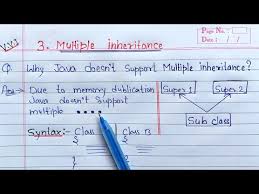 Page No.
Date: / /
3. Multiple inheritance
Q Why Java doesn't Support Multiple inheritance?
Ans→ Due to memory dublication
Java doesn't support
multiple
Super 1
Super 2
Sub class
Syntax:- Class
Class B
{
{
}
}